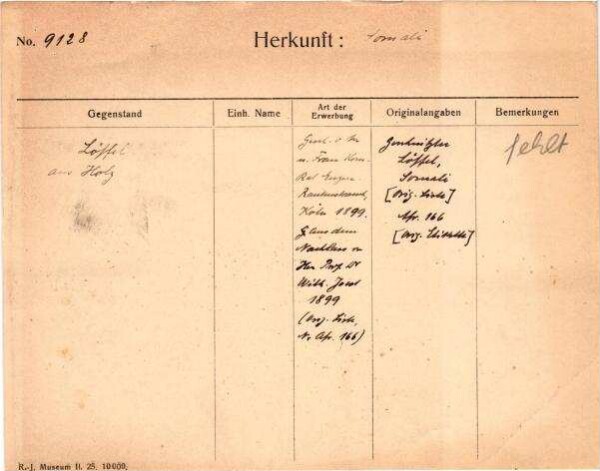 No. 9128 Herkunft: Somali
Gegenstand Einh. Name Art der Erwerbung Originalangaben Bemerkungen
Löffel
aus Holz
Gesch. v. Hr.
u. Frau Kom.
Rat Eugen
Rautenstrauch,
Köln 1899.
aus dem
Nachlass v.
Hrn Prof. Dr
Wilh. Joest
1899
(Orig. Liste,
N. Afr. 166)
Geschnitzter
Löffel,
Somali
[Orig. Liste]
Afr. 166
[Orig. Etikette]
fehlt
R.-J. Museum II. 25. 10000.